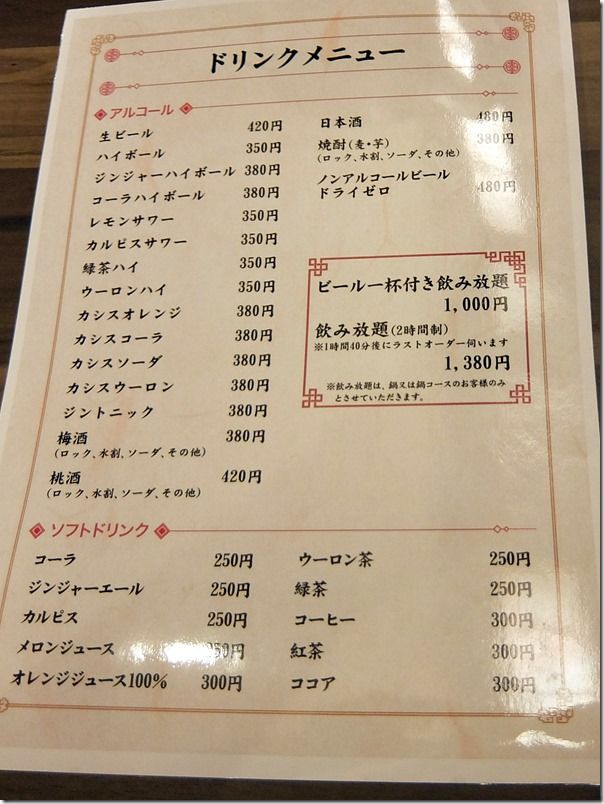 ドリンクメニュー
アルコール
生ビール 420円
ハイボール 350円
ジンジャーハイボール 380円
コーラハイボール 380円
レモンサワー 350円
カルピスサワー 350円
緑茶ハイ 350円
ウーロンハイ 350円
カシスオレンジ 380円
カシスコーラ 380円
カシスソーダ 380円
カシスウーロン 380円
ジントニック 380円
梅酒 380円
(ロック、水割、ソーダ、その他)
桃酒 420円
(ロック、水割、ソーダ、その他)
日本酒 480円
焼酎(麦・芋) 380円
(ロック、水割、ソーダ、その他)
ノンアルコールビール
ドライゼロ 480円
ビール一杯付き飲み放題
1,000円
飲み放題(2時間制)
※1時間40分後にラストオーダー伺います
1,380円
※飲み放題は、鍋又は鍋コースのお客様のみ
とさせていただきます。
ソフトドリンク
コーラ 250円
ジンジャーエール 250円
カルピス 250円
メロンジュース 250円
オレンジジュース100% 300円
ウーロン茶 250円
緑茶 250円
コーヒー 300円
紅茶 300円
ココア 300円